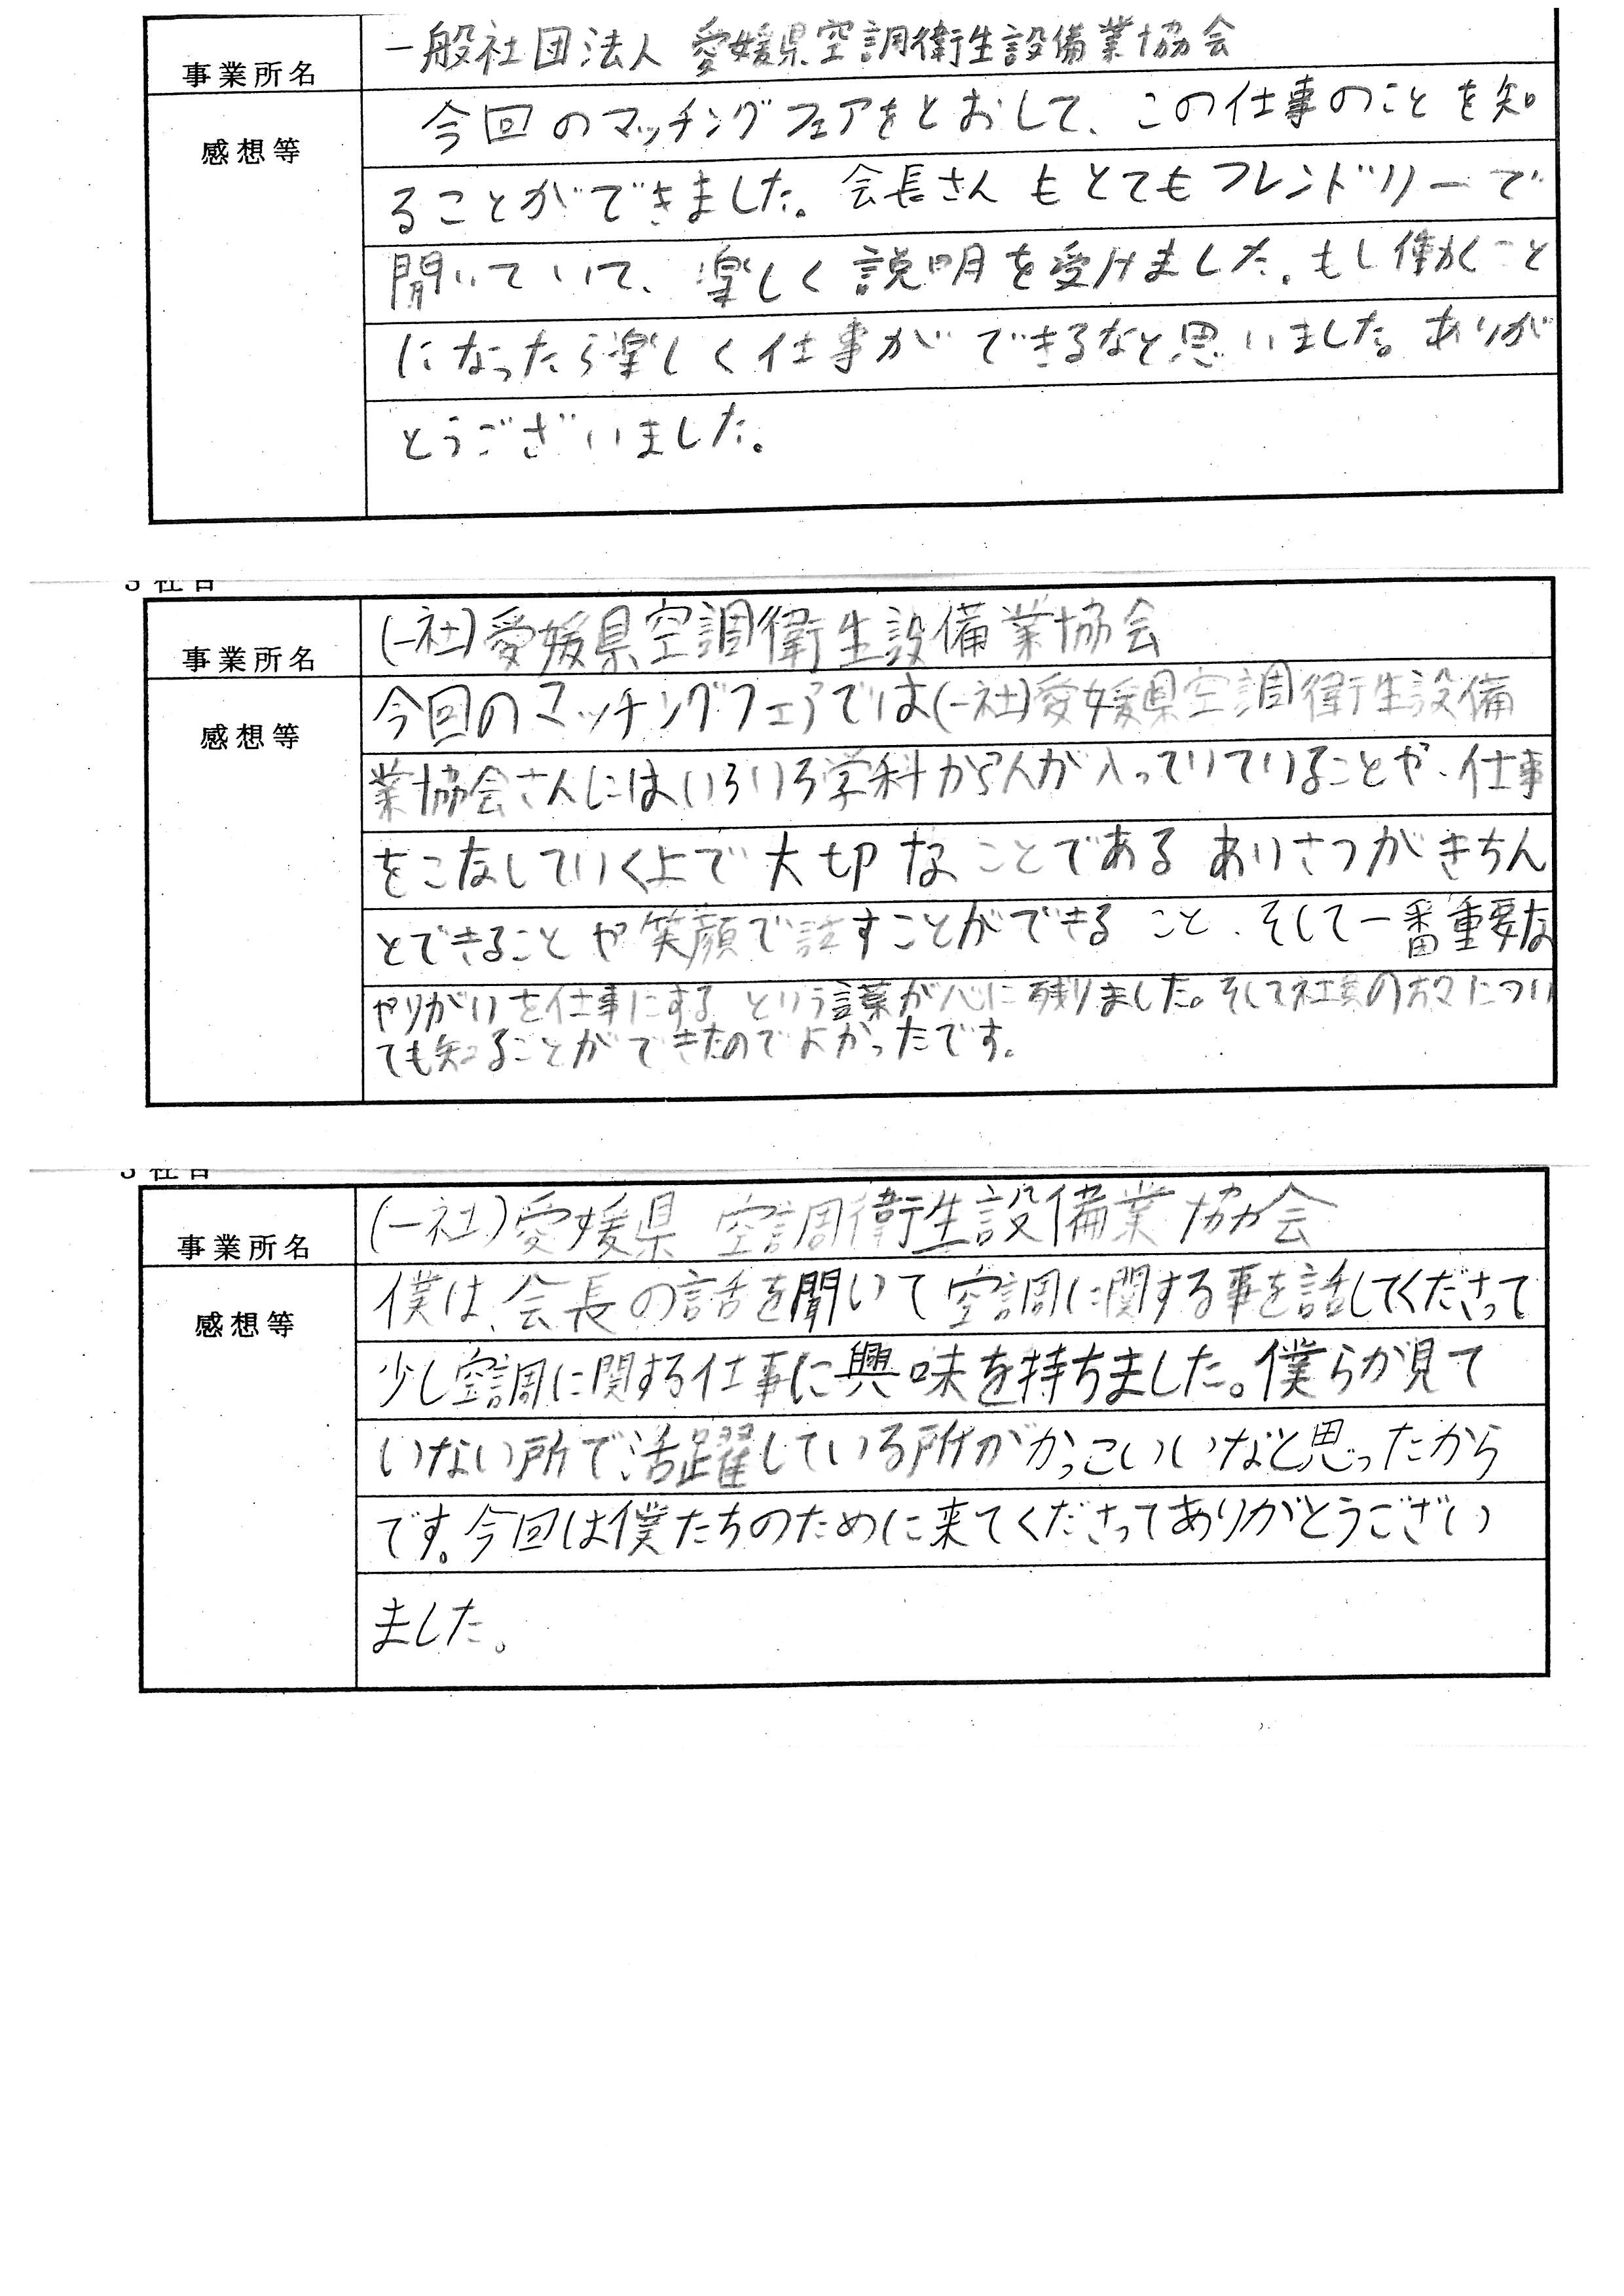 事業所名
一般社団法人 愛媛県空調衛生設備業協会
感想等
今回のマッチングフェアをとおして、この仕事のことを知
ることができました。会長さんもとてもフレンドリーで
聞いていて、楽しく説明を受けました。もし働くこと
になったら楽しく仕事ができるなと思いました。ありが
とうございました。
3社目
事業所名
(一社)愛媛県空調衛生設備業協会
感想等
今回のマッチングフェアでは(一社)愛媛県空調衛生設備
業協会さんにはいろいろ学科から人が入っていていることや、仕事
をこなしていく上で大切なことであるあいさつがきちん
とできることや笑顔で話すことができること、そして一番重要な
やりがいを仕事にするという言葉が心に残りました。そして社員の方々につい
ても知ることができたのでよかったです。
3社目
事業所名
(一社)愛媛県空調衛生設備業協会
感想等
僕は、会長の話を聞いて空調に関する事を話してくださって
少し空調に関する仕事に興味を持ちました。僕らが見て
いない所で活躍している所がかっこいいなと思ったから
です。今回は僕たちのために来てくださってありがとうござい
ました。